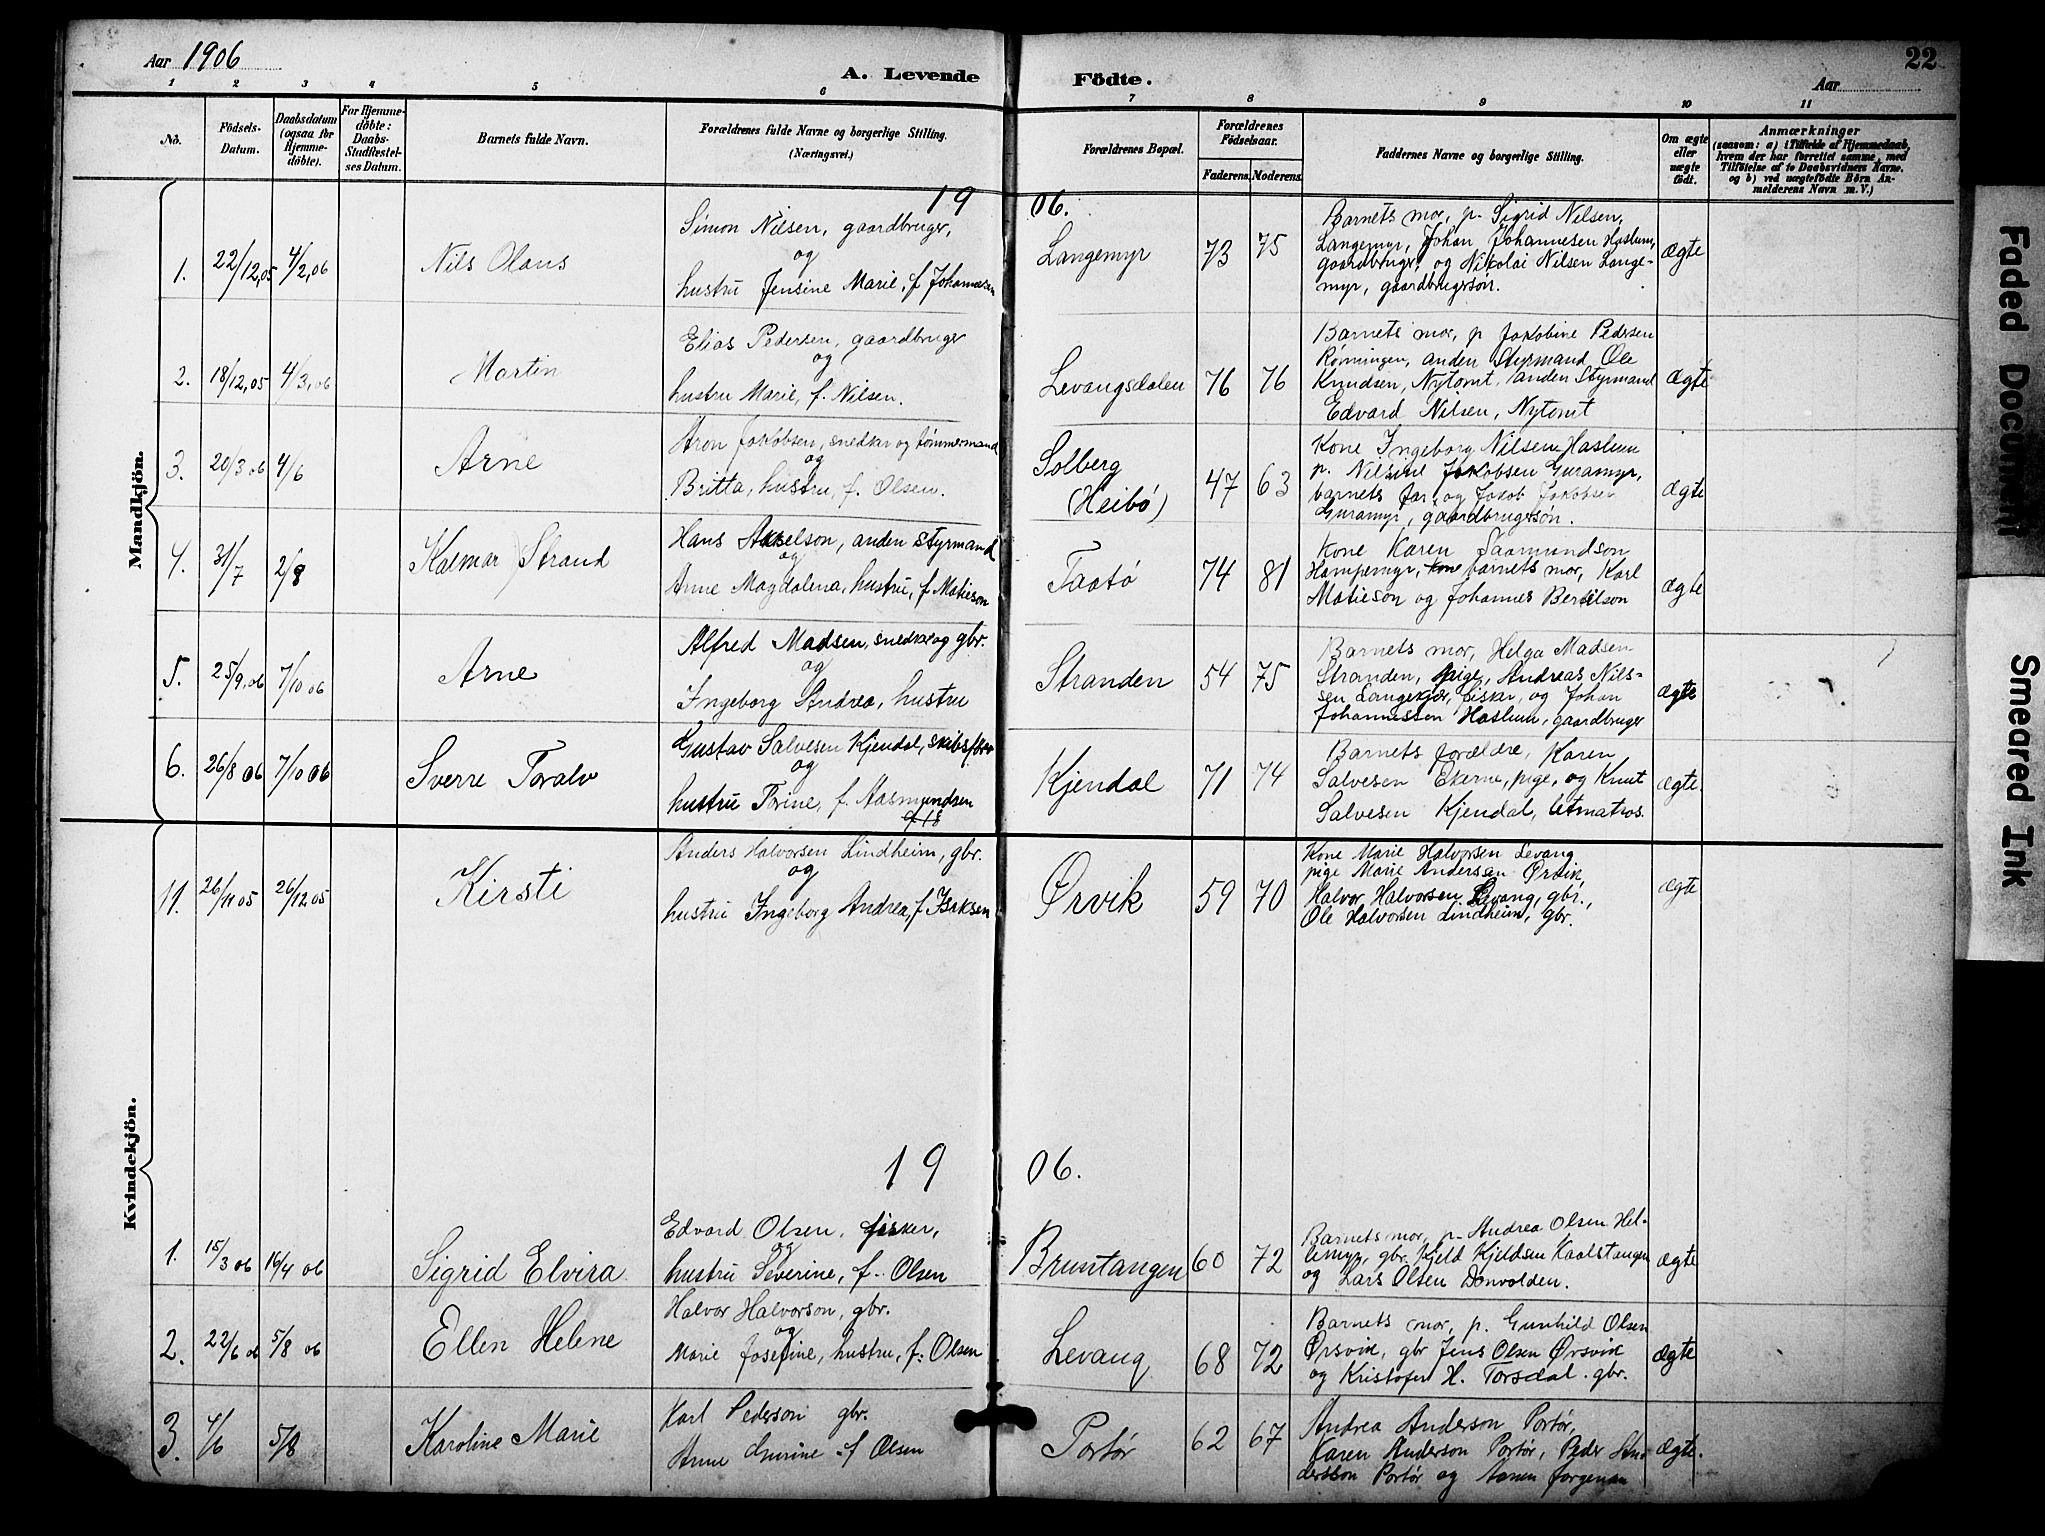 Aar 1906
A. Levende Födte.
22
Aar
1 2 3 4 5 6 7 8 9 10 11
No.
Födsels-
Datum.
Daabsdatum
(ogsaa for
Hjemme-
döbte).
For Hjemme-
döbte:
Daabs-
Stadfæstel-
ses Datum.
Barnets fulde Navn.
Forældrenes fulde Navne og borgerlige Stilling.
(Næringsvei.)
Forældrenes Bopæl.
Forældrenes
Födselsaar.
Faderens. Moderens.
Faddernes Navne og borgerlige Stilling.
Om ægte
eller
uægte
födt.
Anmærkninger
(saasom: a) i Tilfælde af Hjemmedaab,
hvem der har forrettet samme, med
Tilföielse af to Daabsvidners Navne.
og b) ved uægtefödte Börn An-
melderens Navn m. V.)
Mandkjön.
1906.
1. 22/12,05 4/2,06
Nils Olaus
Simon Nilsen, gaardbruger,
og
hustru Jensine Marie, f. Johannesen
Langemyr
73 75
Barnets mor, p. Sigrid Nilsen,
Langemyr, Johan Johannesen Haslum,
gaardbruger, og Nikolai Nilsen Lange-
myr, gaardbrugersøn.
ægte
2. 18/12,05 4/3,06
Martin
Elias Pedersen, gaardbruger
og
hustru Marie, f. Nilsen.
Levangsdalen
76 76
Barnets mor, p Jakobine Pedersen
Rønningen, anden Styrmand Ole
Knudsen, Nytomt, anden Styrmand
Edvard Nilsen, Nytomt
ægte
3. 20/3 06 4/6
Arne
Aron Jakobsen, snedker og tømmermand
og
Britta, hustru, f. Olsen.
Solberg
(Heibø)
47 63
Kone Ingeborg Nilsen Haslum
p. Nilsine Jakobsen Guramyr,
barnets far, og Jakob Jakobsen
Guramyr, gaardbrugersøn.
ægte
4. 31/7 2/8
Kalmar Strand
Hans Akselson, anden styrmand
og
Anne Magdalena, hustru, f. Matieson
Taatø
74 81
Kone Karen Saamundson
Hampemyr, kone barnets mor, Karl
Matieson og Johannes Bertilson
ægte
5. 25/9,06 7/10 06
Arne
Alfred Madsen, snedker og gbr.
og
Ingeborg Andrea, hustru
Stranden
54 75
Barnets mor, Helga Madsen
Stranden, pige, Andreas Nils-
sen Langekjær, fisker, og Johan
Johannessen Haslum, gaardbruger
ægte
6. 26/8 06 7/10 06
Sverre Toralv
Gustav Salvesen Kjendal, skibsfører
og
hustru Torine, f. Aasmundsen
Kjendal
71 74
Barnets forældre, Karen
Salvesen Ekerne, pige, og Knut
Salvesen Kjendal, letmatros.
ægte.
Kvindekjön.
11. 26/11 05 26/12 05
Kirsti
Anders Halvorsen Lindheim, gbr.
og
hustru Ingeborg Andrea, f. Isaksen
Ørvik
59 70
Kone Marie Halvorsen Levang
pige Marie Andersen Ørvik
Halvor Halvorsen Levang, gbr.,
Ole Halvorsen Lindheim, gbr.
ægte
1906.
1. 15/3 06 16/4 06
Sigrid Elvira
Edvard Olsen, fisker,
og
hustru Severine, f. Olsen
Bruntangen
60 72
Barnets mor, p. Andrea Olsen Hel-
lemyr, gbr. Kjeld Kjeldsen Kaalstangen
og Lars Olsen Donvolden.
ægte
2. 22/6 06 5/8 06
Ellen Helene
Halvor Halvorson, gbr.
og
Marie Josefine, hustru, f. Olsen
Levang
68 72
Barnets mor, p. Gunhild Olsen
Ørsvik, gbr Jens Olsen Ørsvik
og Kristofer H. Torsdal. gbr.
ægte
3. 4/6 5/8
Karoline Marie
Karl Pederson gbr.
Anne Gurine f. Olsen
Portør
62 67
Andrea Anderson Portør,
Karen Anderson Portør, Peder An-
dersson Portør og Aanen Jorgensen
ægte.
Faded Document
Smeared Ink